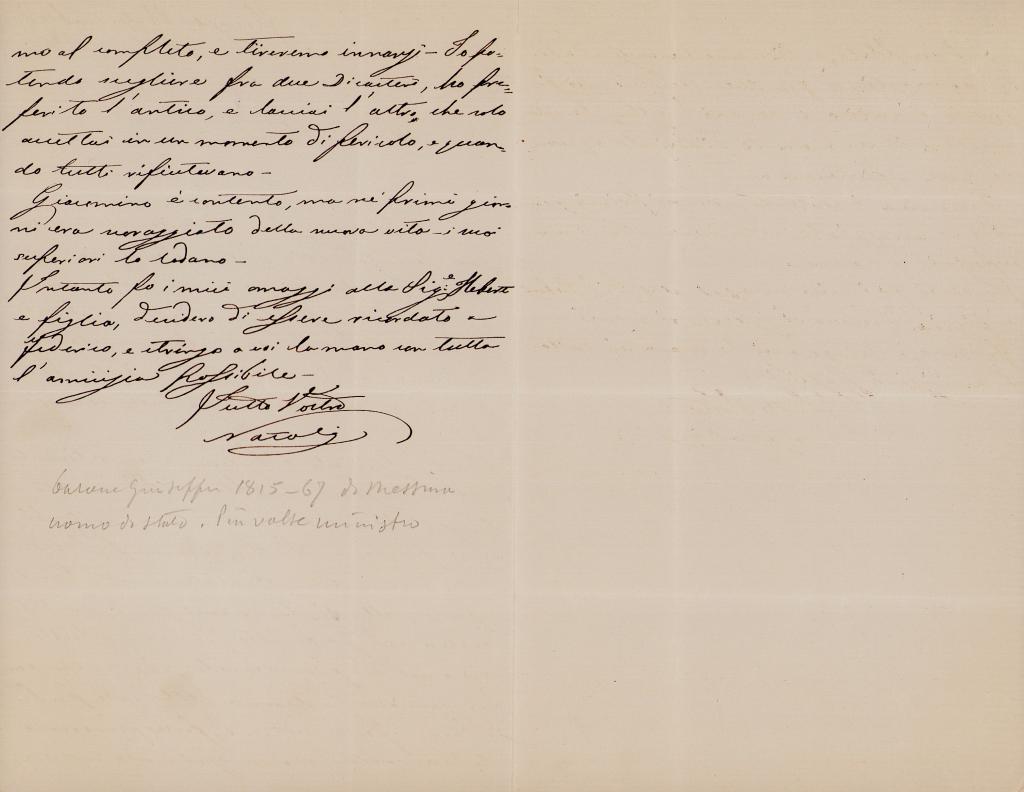 mo al completo, e tireremo innanzi – Io po-
tendo scegliere fra due Dicasteri, ho pre=
ferito l'antico, e lasciai l'altro, che solo
accettai in un momento di pericolo, e quan-
do tutti rifiutavano –
Giacomino è contento, ma ne' primi gior-
ni era noraggiato della nuova vita – i suoi
superiori lo lodano –
Intanto fo i miei omaggi alla Sig.e Hebert
e figlia, desidero di essere ricordato a
Federico, e stringo a voi la mano con tutta
l'amicizia possibile –
Tutto Vostro
Natoli
barone Giuseppe 1815–67 di Messina
uomo di stato. Più volte ministro